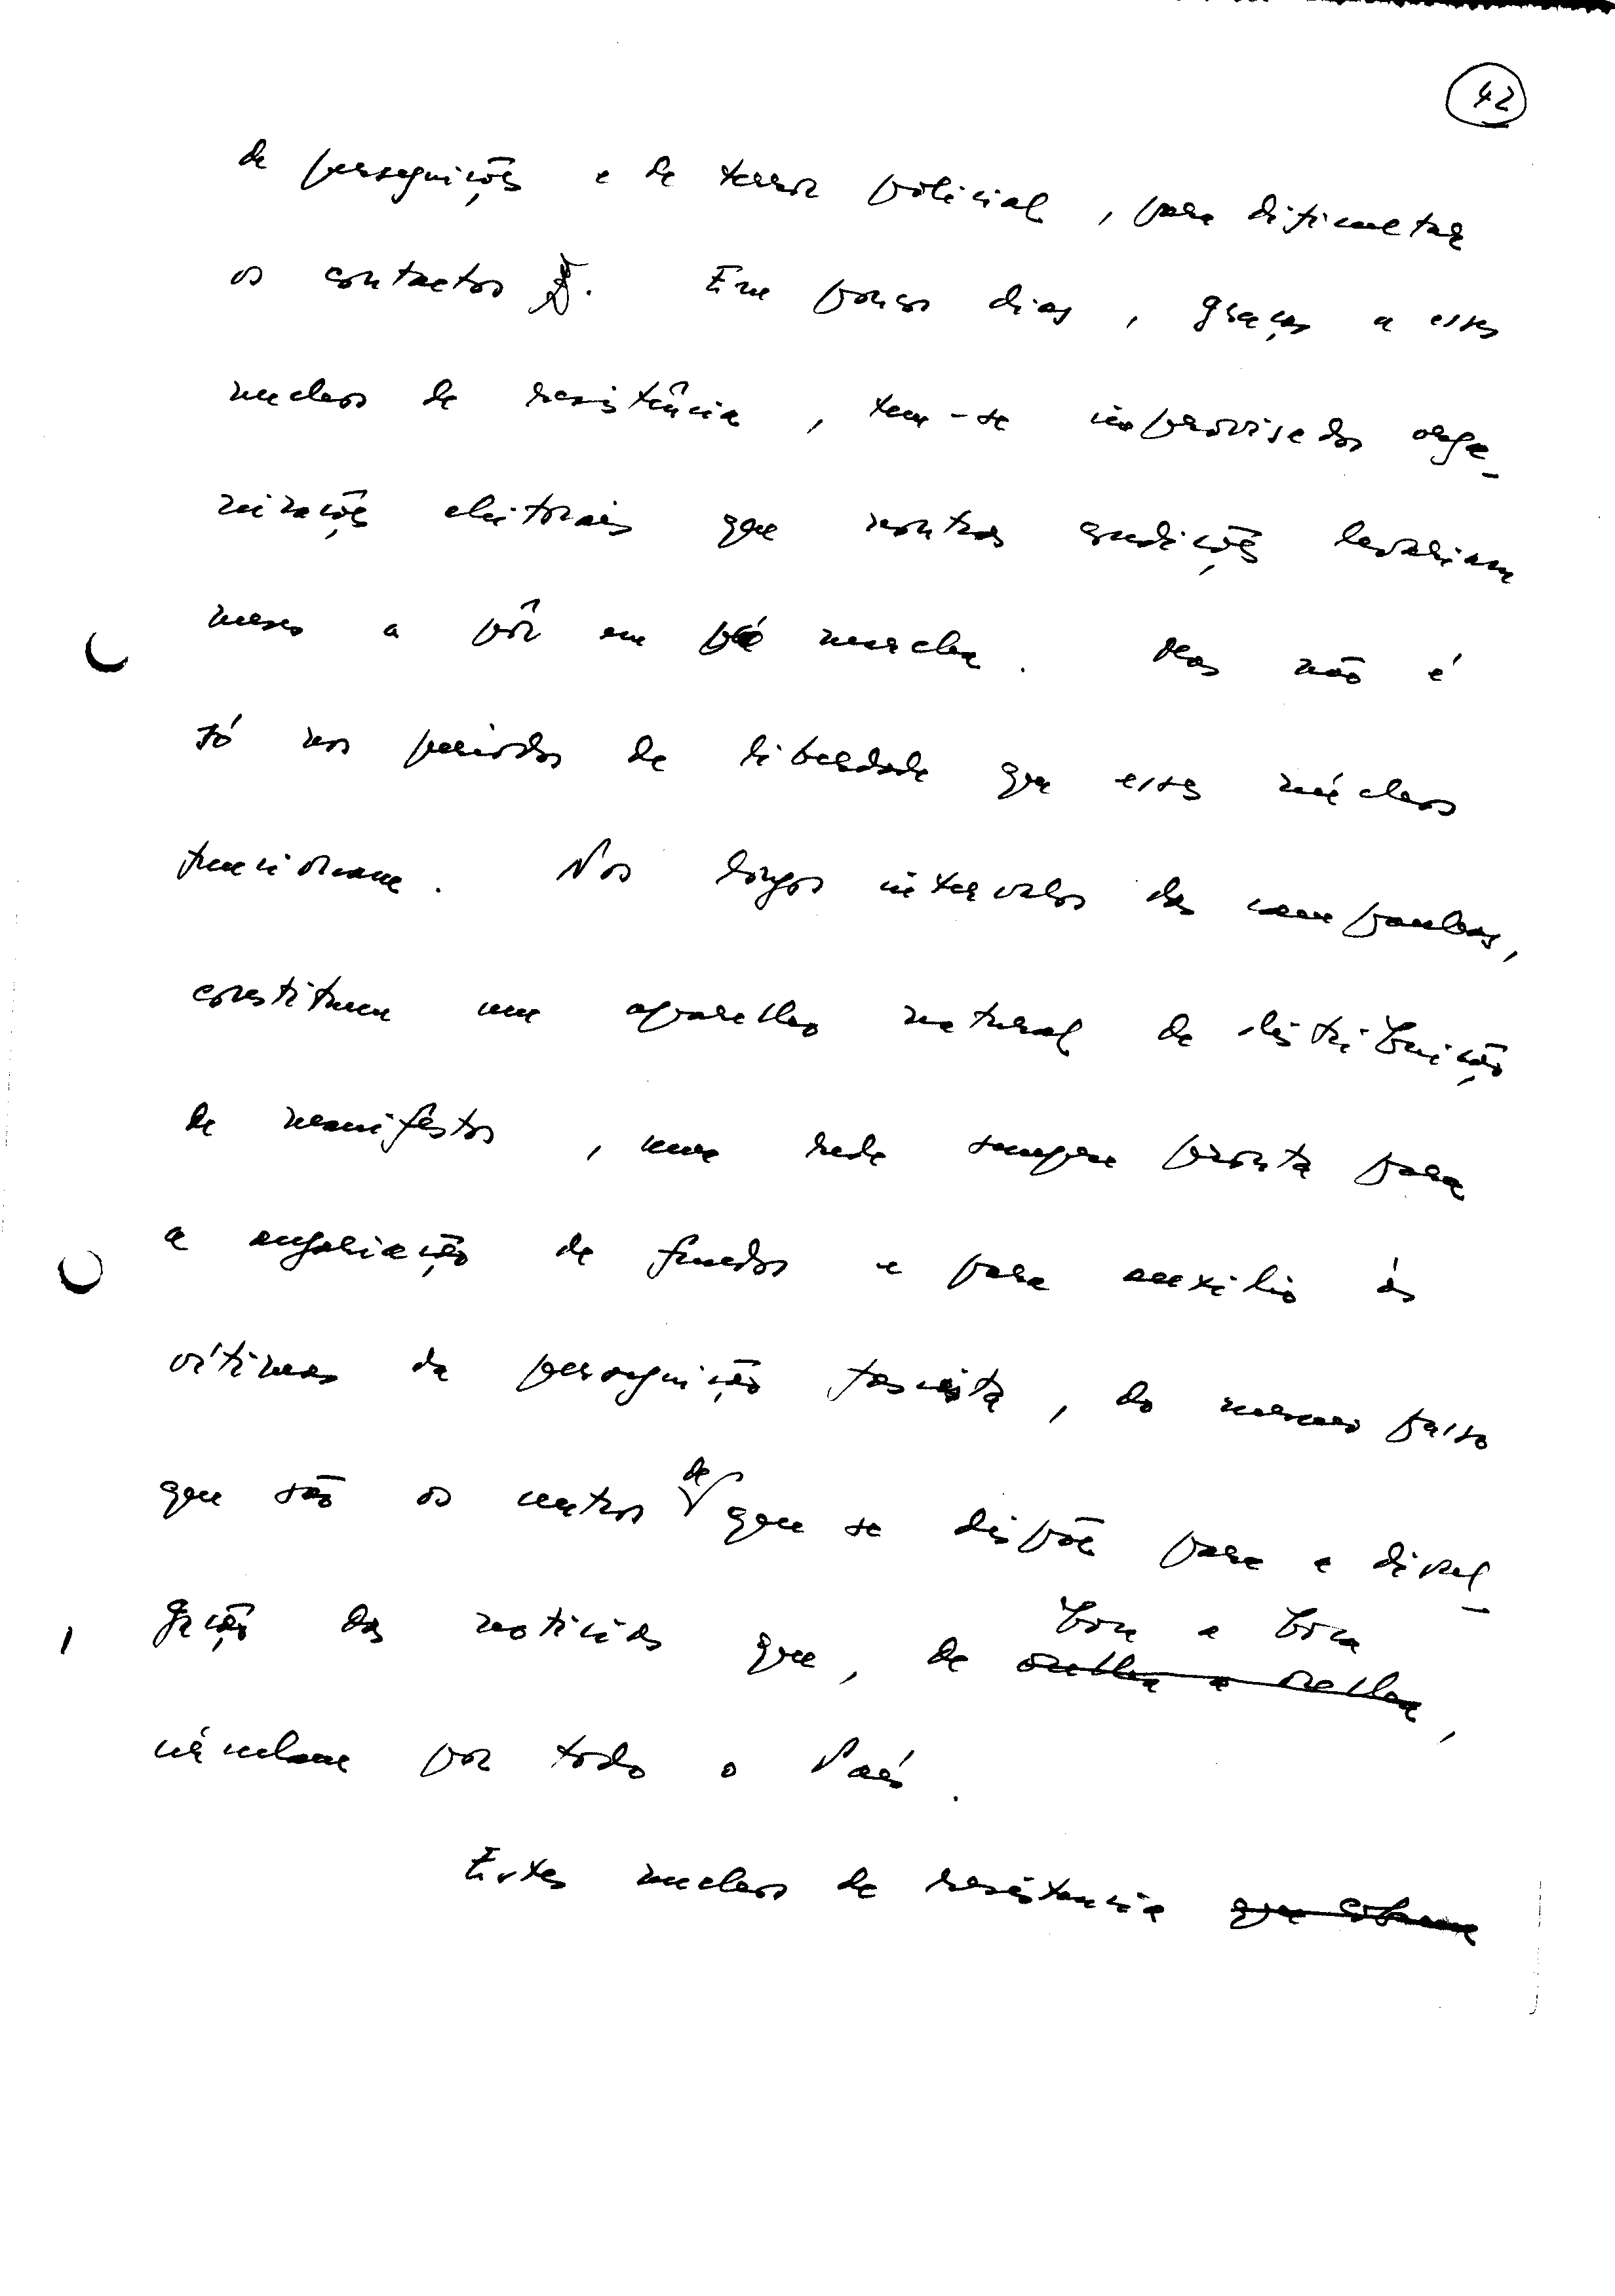 42
de perseguições e de terror policial, para dificultar
os contactos. Em poucos dias, graças a esses
nucleos de resistência, tem-se improvisado orga-
nizações eleitorais que noutras condições levariam
meses a pôr em marcha. Mas não é
só nos periodos de liberdade que esses núcleos
funcionam. Nos longos intervalos das campanhas,
constituem um aparelho natural de distribuição
de manifestos, uma rede sempre pronta para
a angariação de fundos e para auxilio às
vítimas da perseguição fascista, do mesmo passo
que são os centros de que se dispõe para a divul-
gação das noticias que, de boca a boca
orelha a orelha,
circulam por todo o País.
Estes nucleos de resistencia que cobrem